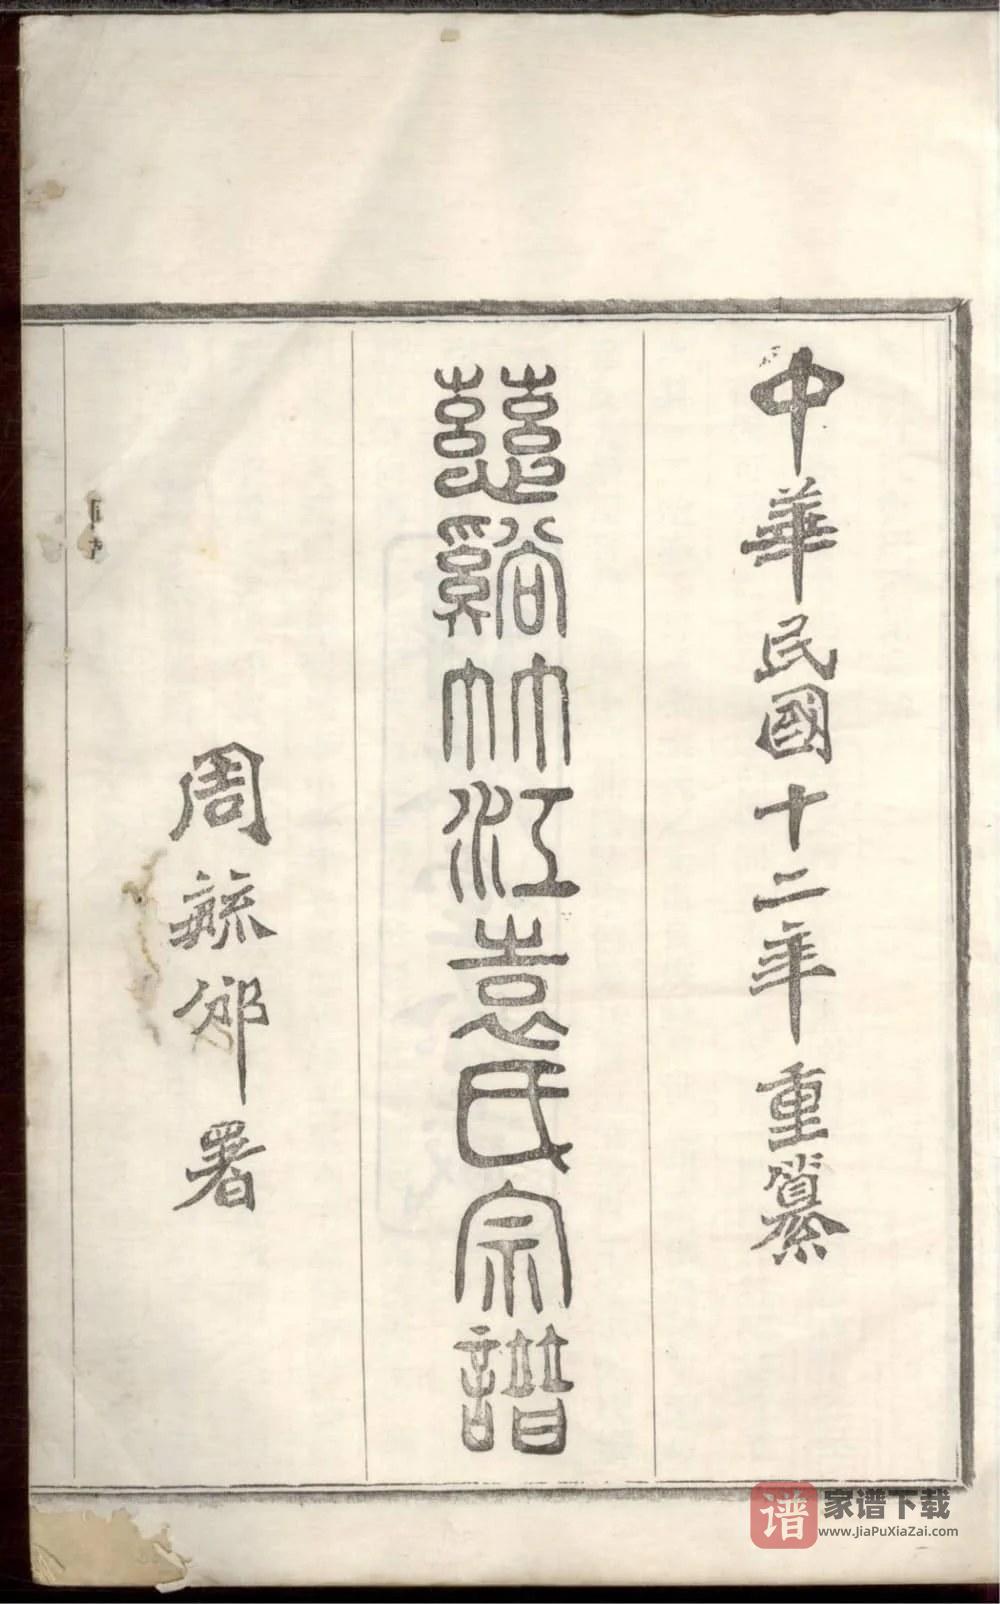 中華民國十二年重纂
慈谿竹江袁氏宗譜
周毓邠署
谱 家谱下载
www.JiaPuXiaZai.com